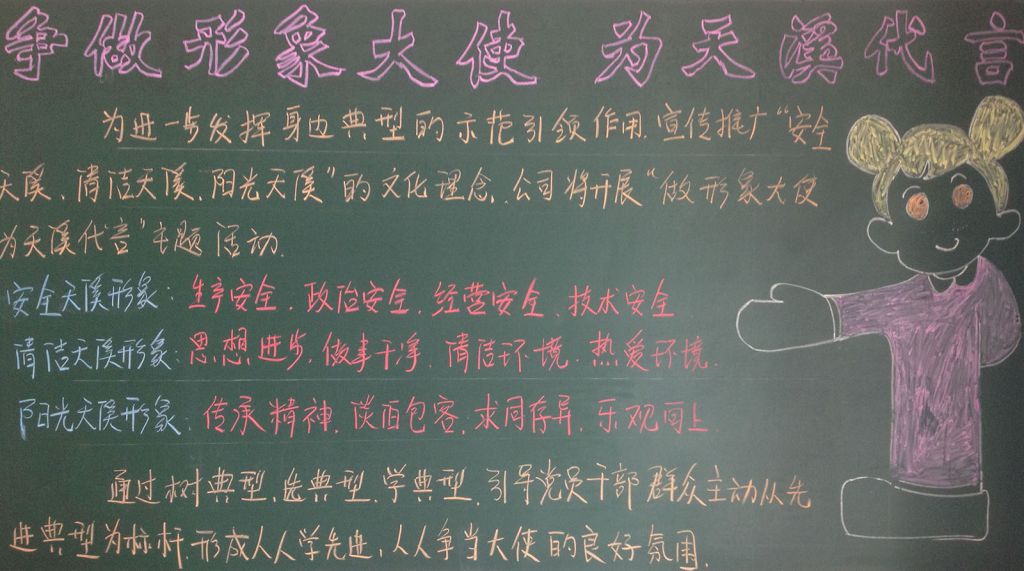 争做形象大使 为天溪代言
为进一步发挥身边典型的示范引领作用,宣传推广“安全
天溪、清洁天溪、阳光天溪”的文化理念,公司将开展“做形象大使
为天溪代言”主题活动.
安全天溪形象:生产安全、政治安全、经营安全、技术安全
清洁天溪形象:思想进步,做事干净,清洁环境,热爱环境.
阳光天溪形象:传承精神,谈百包容,求同存异,乐观向上
通过树典型,选典型,学典型,引导党员干部群众主动从先
进典型为标杆,形成人人学先进,人人争当大使的良好氛围.